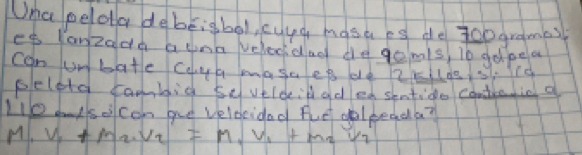 Una pelota de béisbol, cuya masa es de 700 gramos,
es lanzada a una velocidad de 90m/s, lo golpea
con un bate cuya masa es de 2 kilos, si la
pelota cambia su velocidad en sentido contrario a
110 m/s ¿con que velocidad fue golpeada?
M₁V₁ + m₂V₂ = m₁V₁ + m₂V₂